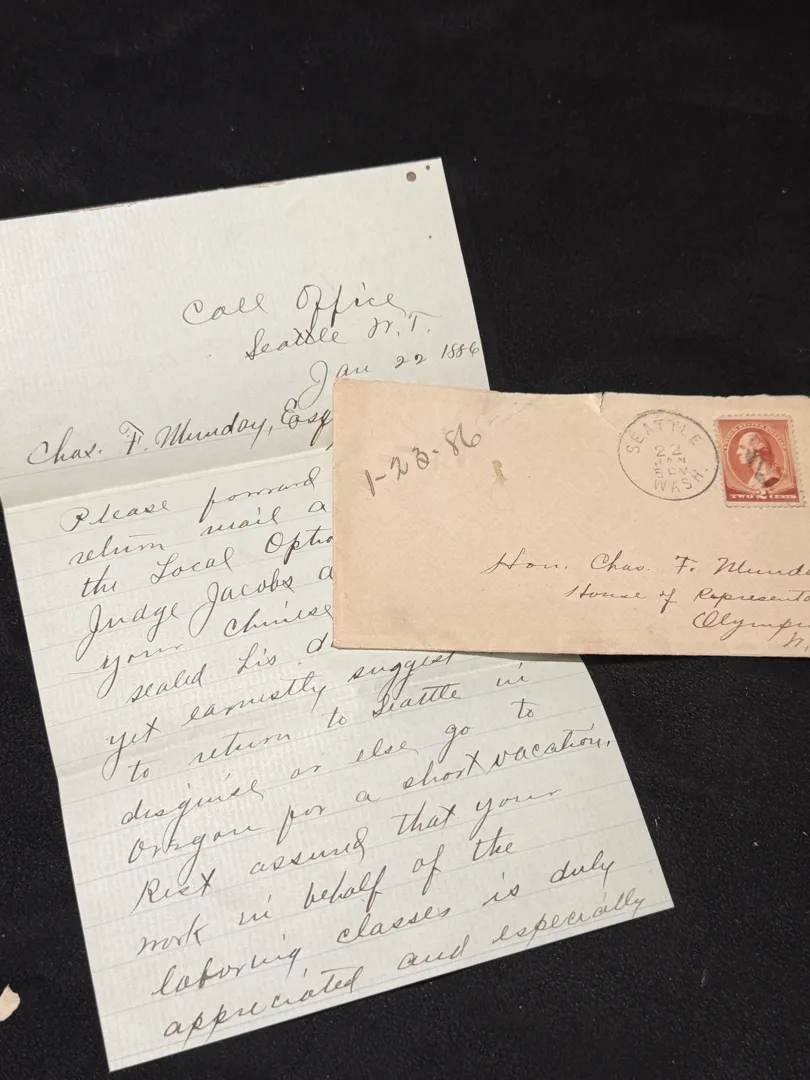 Call Office
Seattle W.T.
Jan 22 1886
Chas. F. Munday, Esq
Please forward
return mail a
the Local Optio
Judge Jacobs a
your Chinese
sealed his d
yet earnestly suggest
to return to Seattle in
disguise or else go to
Oregon for a short vacation.
Rest assured that your
work in behalf of the
laboring classes is duly
appreciated and especially
1-23-86
SEATTLE
22
JAN
WASH.
TWO 2 CENTS
Hon. Chas. F. Munda
House of Representa
Olympi